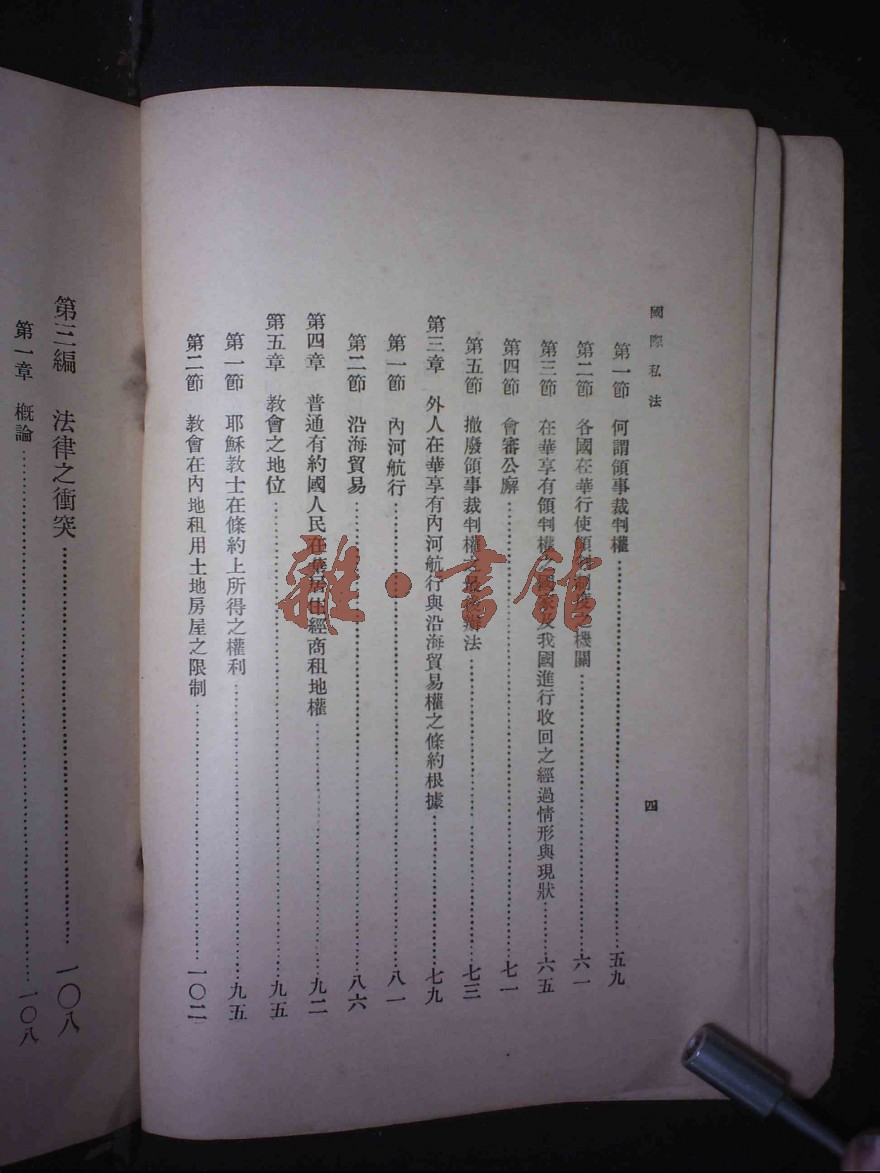 國際私法
四
第一節 何謂領事裁判權……五九
第二節 各國在華行使領判制度之機關……六一
第三節 在華享有領判權之國家及我國進行收回之經過情形與現狀……六五
第四節 會審公廨……七一
第五節 撤廢領事裁判權之最後辦法……七三
第三章 外人在華享有內河航行與沿海貿易權之條約根據……七九
第一節 內河航行……八一
第二節 沿海貿易……八六
第四章 普通有約國人民在華居住經商租地權……九二
第五章 教會之地位……九五
第一節 耶穌教士在條約上所得之權利……九五
第二節 教會在內地租用土地房屋之限制……一〇二
第三編 法律之衝突……一〇八
第一章 概論……一〇八
雜·書館